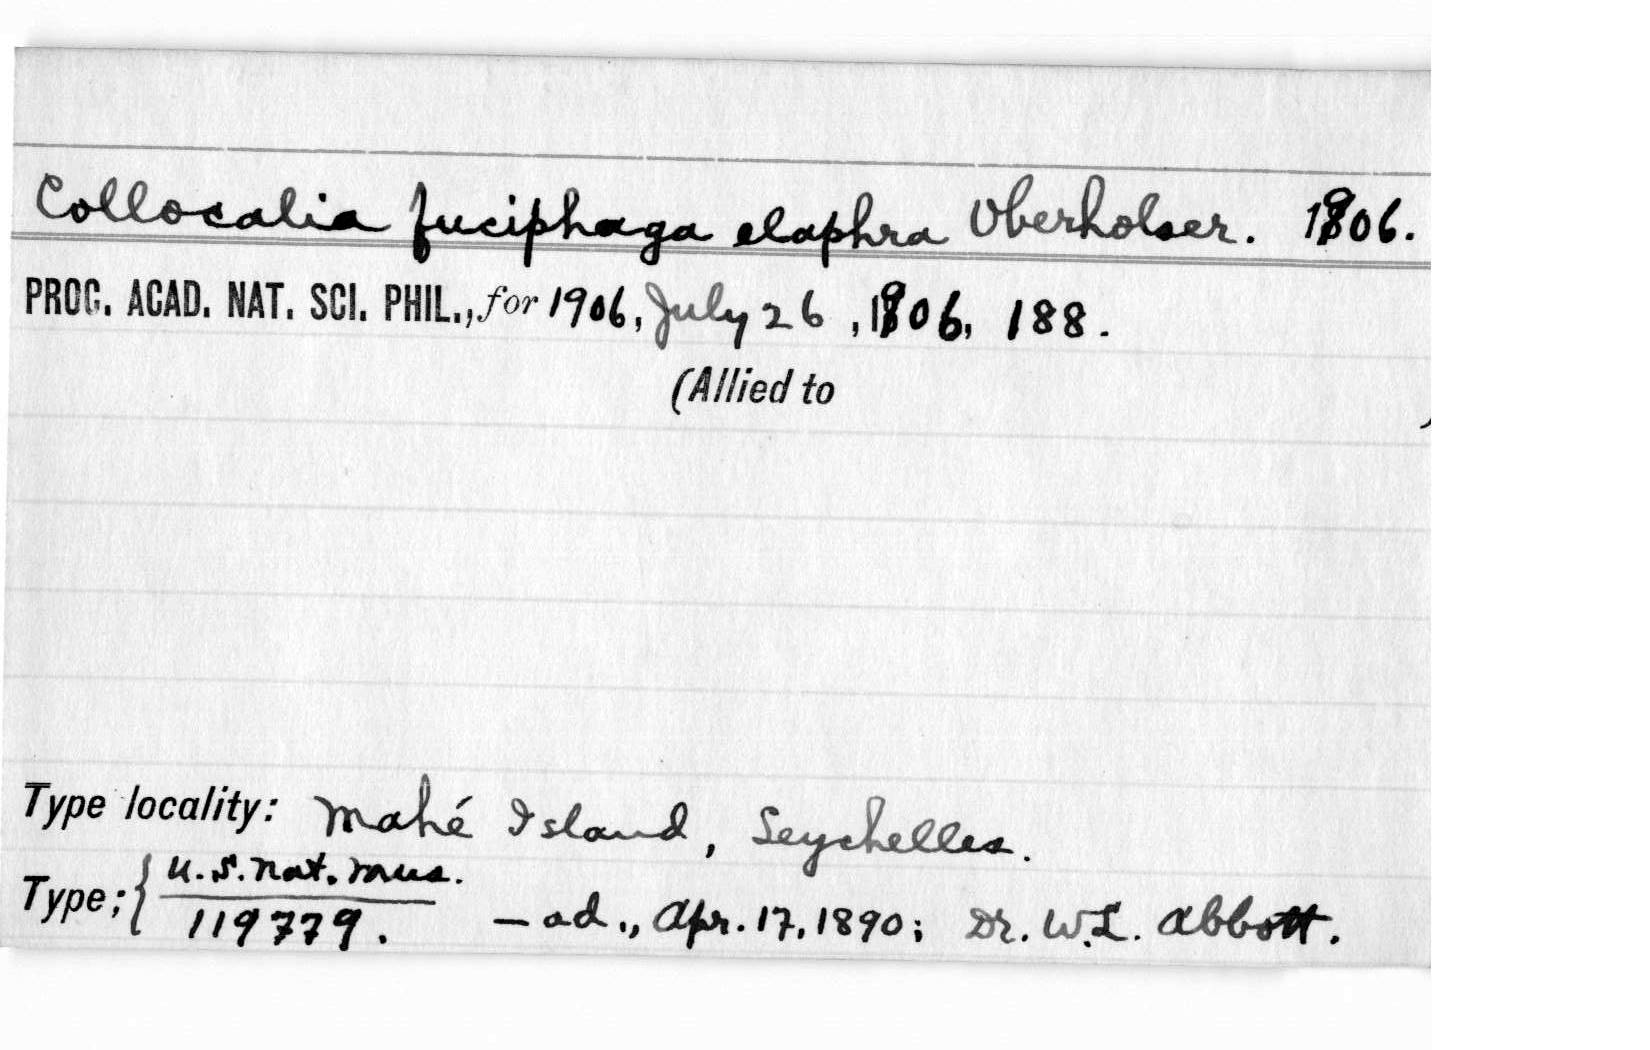 Collocalia fuciphaga elaphra Oberholser. 1906.
PROC. ACAD. NAT. SCI. PHIL., for 1906, July 26, 1906, 188.
(Allied to )
Type locality: Mahé Island, Seychelles.
Type; { U.S. Nat. Mus.
119779. — ad., Apr. 17, 1890; Dr. W.L. Abbott.